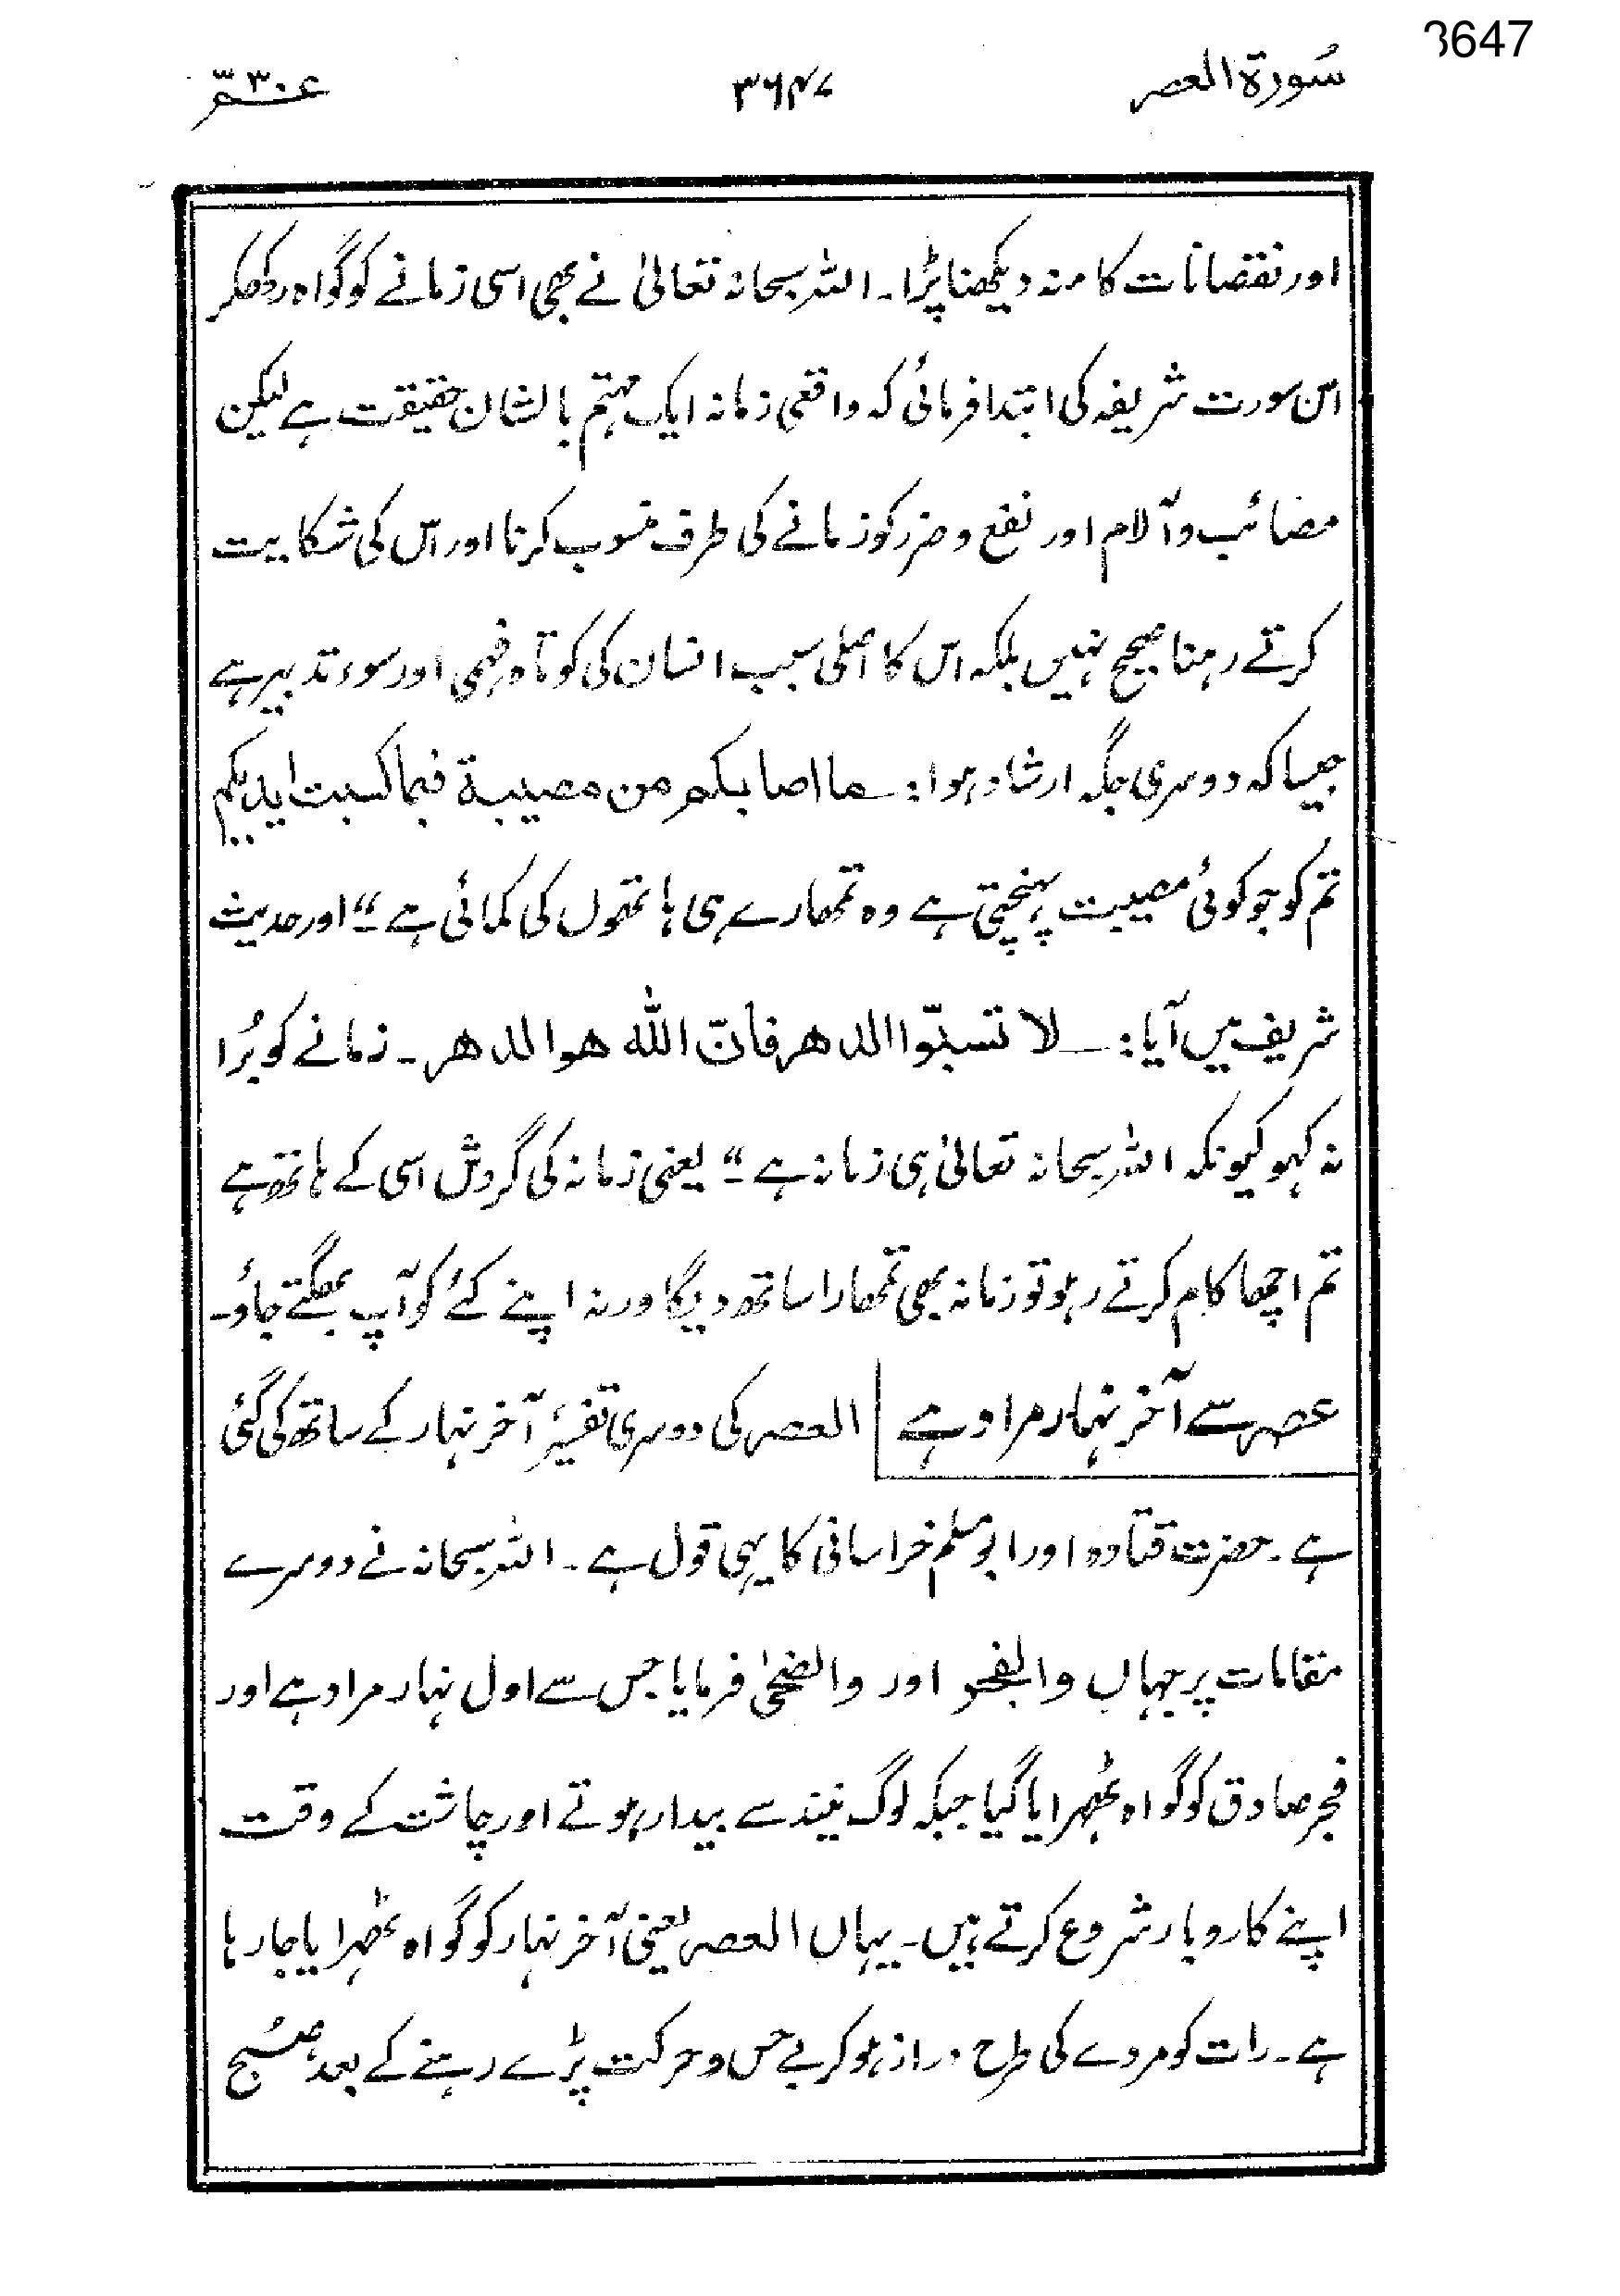 3647
سُورة العصر ۳۶۴۷ عمّ ۳۰
اور نقصانات کا منہ دیکھنا پڑا۔ اللہ سبحانہ تعالیٰ نے بھی اسی زمانے کو گواہ رکھکر
اس سورت شریفہ کی ابتدا فرمائی کہ واقعی زمانہ ایک مہتم بالشان حقیقت ہے لیکن
مصائب و آلام اور نفع و ضرر کو زمانے کی طرف منسوب کرنا اور اس کی شکایت
کرتے رہنا صحیح نہیں بلکہ اس کا اصلی سبب انسان کی کوتاہ فہمی اور سوء تدبیر ہے
جیسا کہ دوسری جگہ ارشاد ہوا: ما اصابکم من مصیبة فبما کسبت ایدیکم
تم کو جو کوئی مصیبت پہنچتی ہے وہ تمھارے ہی ہاتھوں کی کمائی ہے“ اور حدیث
شریف میں آیا: لا تسبّوا الدھر فانّ اللہ ھو الدھر۔ زمانے کو بُرا
نہ کہو کیونکہ اللہ سبحانہ تعالیٰ ہی زمانہ ہے“ یعنی زمانہ کی گردش اسی کے ہاتھ ہے
تم اچھا کام کرتے رہو تو زمانہ بھی تمھارا ساتھ دیگا ورنہ اپنے کئے کو آپ بھگتے جاؤ۔
عصر سے آخر نہار مراد ہے العصر کی دوسری تفسیر آخر نہار کے ساتھ کی گئی
ہے۔ حضرت قتادہ اور ابو مسلم خراسانی کا یہی قول ہے۔ اللہ سبحانہ نے دوسرے
مقامات پر جہاں والفجر اور والضحیٰ فرمایا جس سے اول نہار مراد ہے اور
فجر صادق کو گواہ ٹھہرایا گیا جبکہ لوگ نیند سے بیدار ہوتے اور چاشت کے وقت
اپنے کاروبار شروع کرتے ہیں۔ یہاں العصر یعنی آخر نہار کو گواہ ٹھہرایا جارہا
ہے۔ رات کو مردے کی طرح دراز ہو کر بے حس و حرکت پڑے رہنے کے بعد صُبح